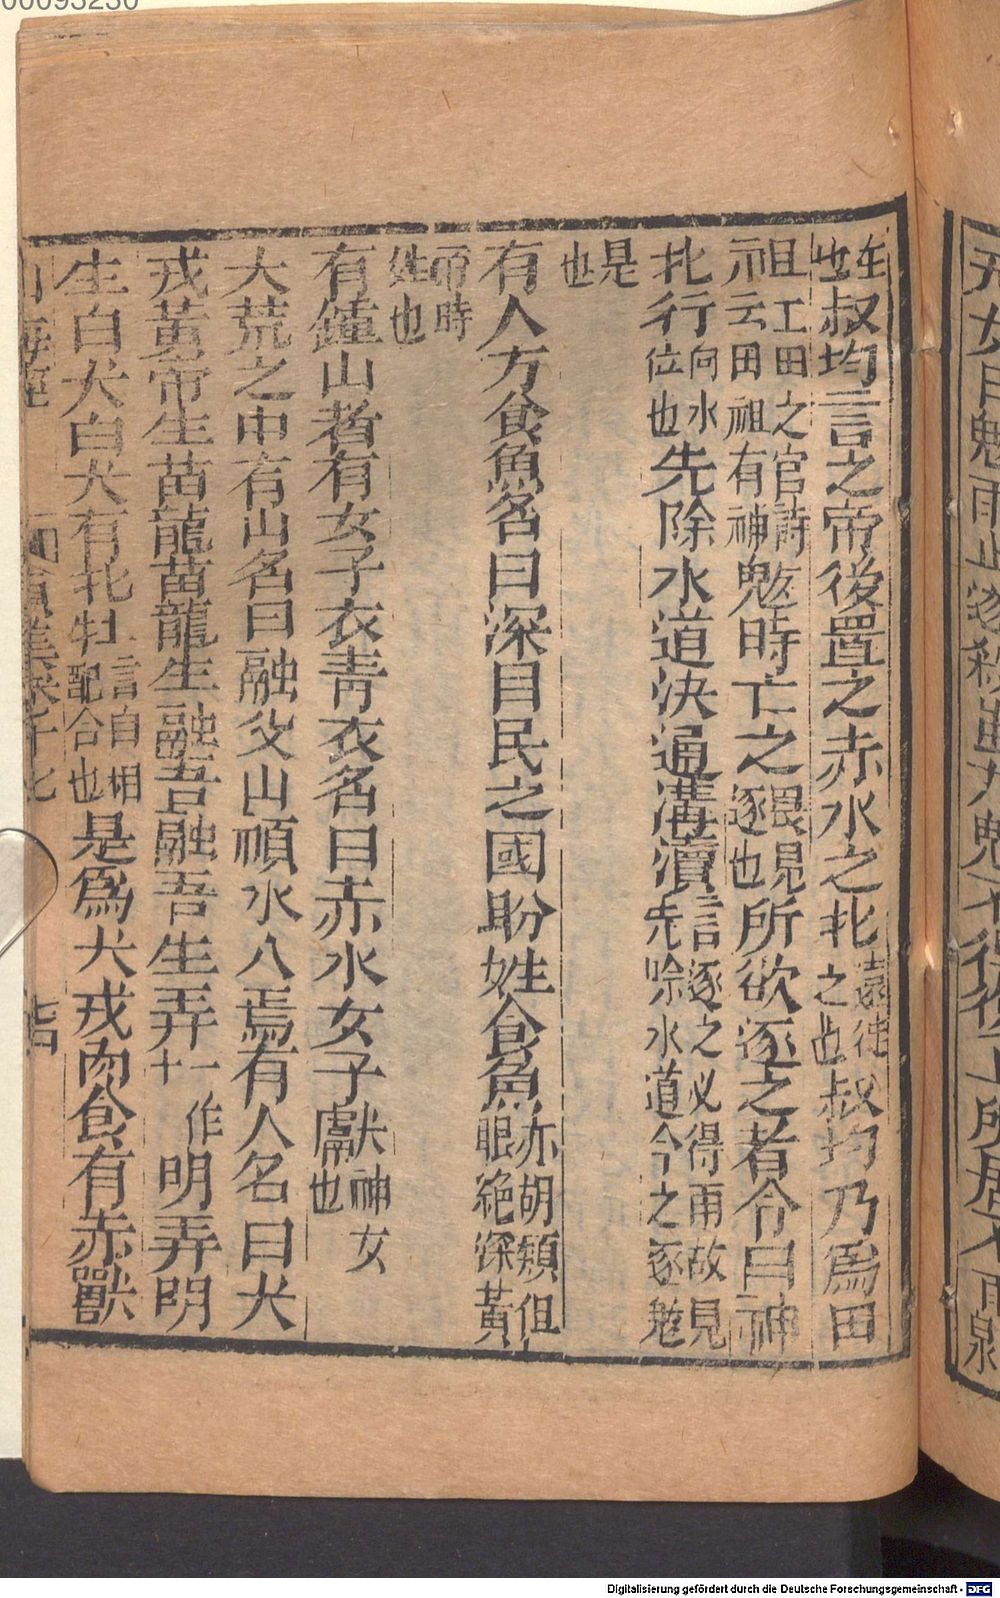 00093230
在也叔均言之帝後置之赤水之北遠徙之也叔均乃爲田
祖工田之官詩云田祖有神魃時亡之畏見逐也所欲逐之者令曰神
北行向水位也先除水道決通溝瀆言逐之必得雨故見先除水道今之逐魃
是也
有人方食魚名曰深目民之國盼姓食魚亦胡類但眼絶深黃
帝時姓也
有鐘山者有女子衣青衣名曰赤水女子獻神女也
大荒之中有山名曰融父山順水入焉有人名曰犬
戎黃帝生苗龍苗龍生融吾融吾生弄一作卞明弄明
生白犬白犬有牝牡言自相配合也是爲犬戎肉食有赤獸
Digitalisierung gefördert durch die Deutsche Forschungsgemeinschaft - DFG